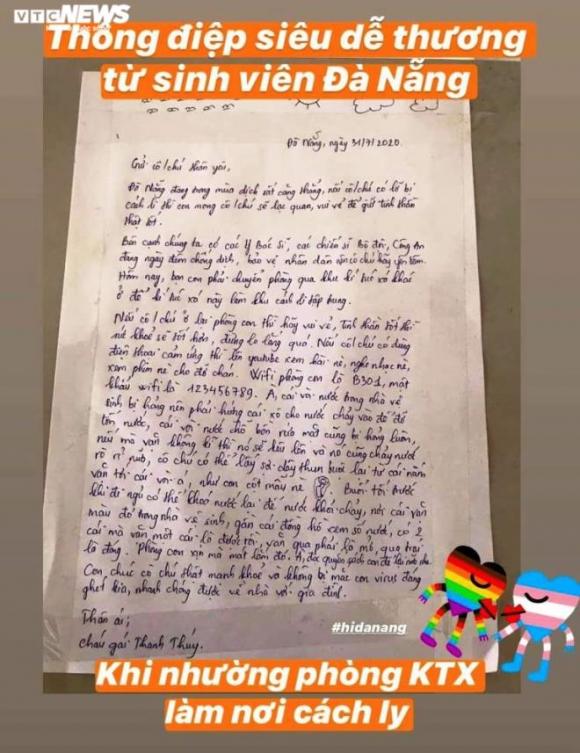 VTC NEWS
Thông điệp siêu dễ thương
từ sinh viên Đà Nẵng
Đà Nẵng, ngày 31/7/2020.
Gửi cô/chú thân yêu,
Đà Nẵng đang trong mùa dịch rất căng thẳng, nếu cô/chú có lỡ bị
cách li thì con mong cô/chú sẽ lạc quan, vui vẻ để giữ tinh thần
thật tốt.
Bên cạnh chúng ta có các Y Bác Sĩ, các chiến sĩ Bộ đội, Công An
đang ngày đêm chống dịch, bảo vệ nhân dân nên cô chú hãy yên tâm.
Hôm nay, bọn con phải chuyển phòng qua khu kí túc xá khác
ở để kí túc xá này làm khu cách li tập trung.
Nếu cô/chú ở lại phòng con thì hãy vui vẻ, tinh thần tốt thì
sức khoẻ sẽ tốt hơn, đừng lo lắng quá. Nếu cô/chú có dùng
điện thoại cảm ứng thì lên youtube xem hài nè, nghe nhạc nè,
xem phim nè cho đỡ chán. Wifi phòng con là B301, mật
khẩu wifi là 123456789. À, cái van nước trong nhà vệ
sinh bị hỏng nên phải hứng cái xô cho nước chảy vào đó để
tốn nước, cái vòi nước chỗ bồn rửa mặt cũng bị hỏng luôn,
nếu mà vặn không kĩ thì nó sẽ kêu lên và nó cũng chảy nước
rò rỉ nữa, cô chú có thể lấy sợi dây thun buộc lại từ cái nắm
vặn tới cái vòi ạ, như con cột mấy nè Buổi tối trước
khi đi ngủ có thể khoá nước lại để nước khỏi chảy, nơi cái van
màu đỏ trong nhà vệ sinh, gần cái đồng hồ xem số nước, có 2
cái mà vặn một cái là được rồi, vặn qua phải là mở, qua trái
là đóng. Phòng con xịn mà mát lắm đó. À, đọc quyển sách con để
Con chúc cô chú thật mạnh khoẻ và không bị mắc con virus đáng
ghét kia, nhanh chóng được về nhà với gia đình.
Thân ái,
Cháu gái Thanh Thúy.
#hidanang
Khi nhường phòng KTX
làm nơi cách ly